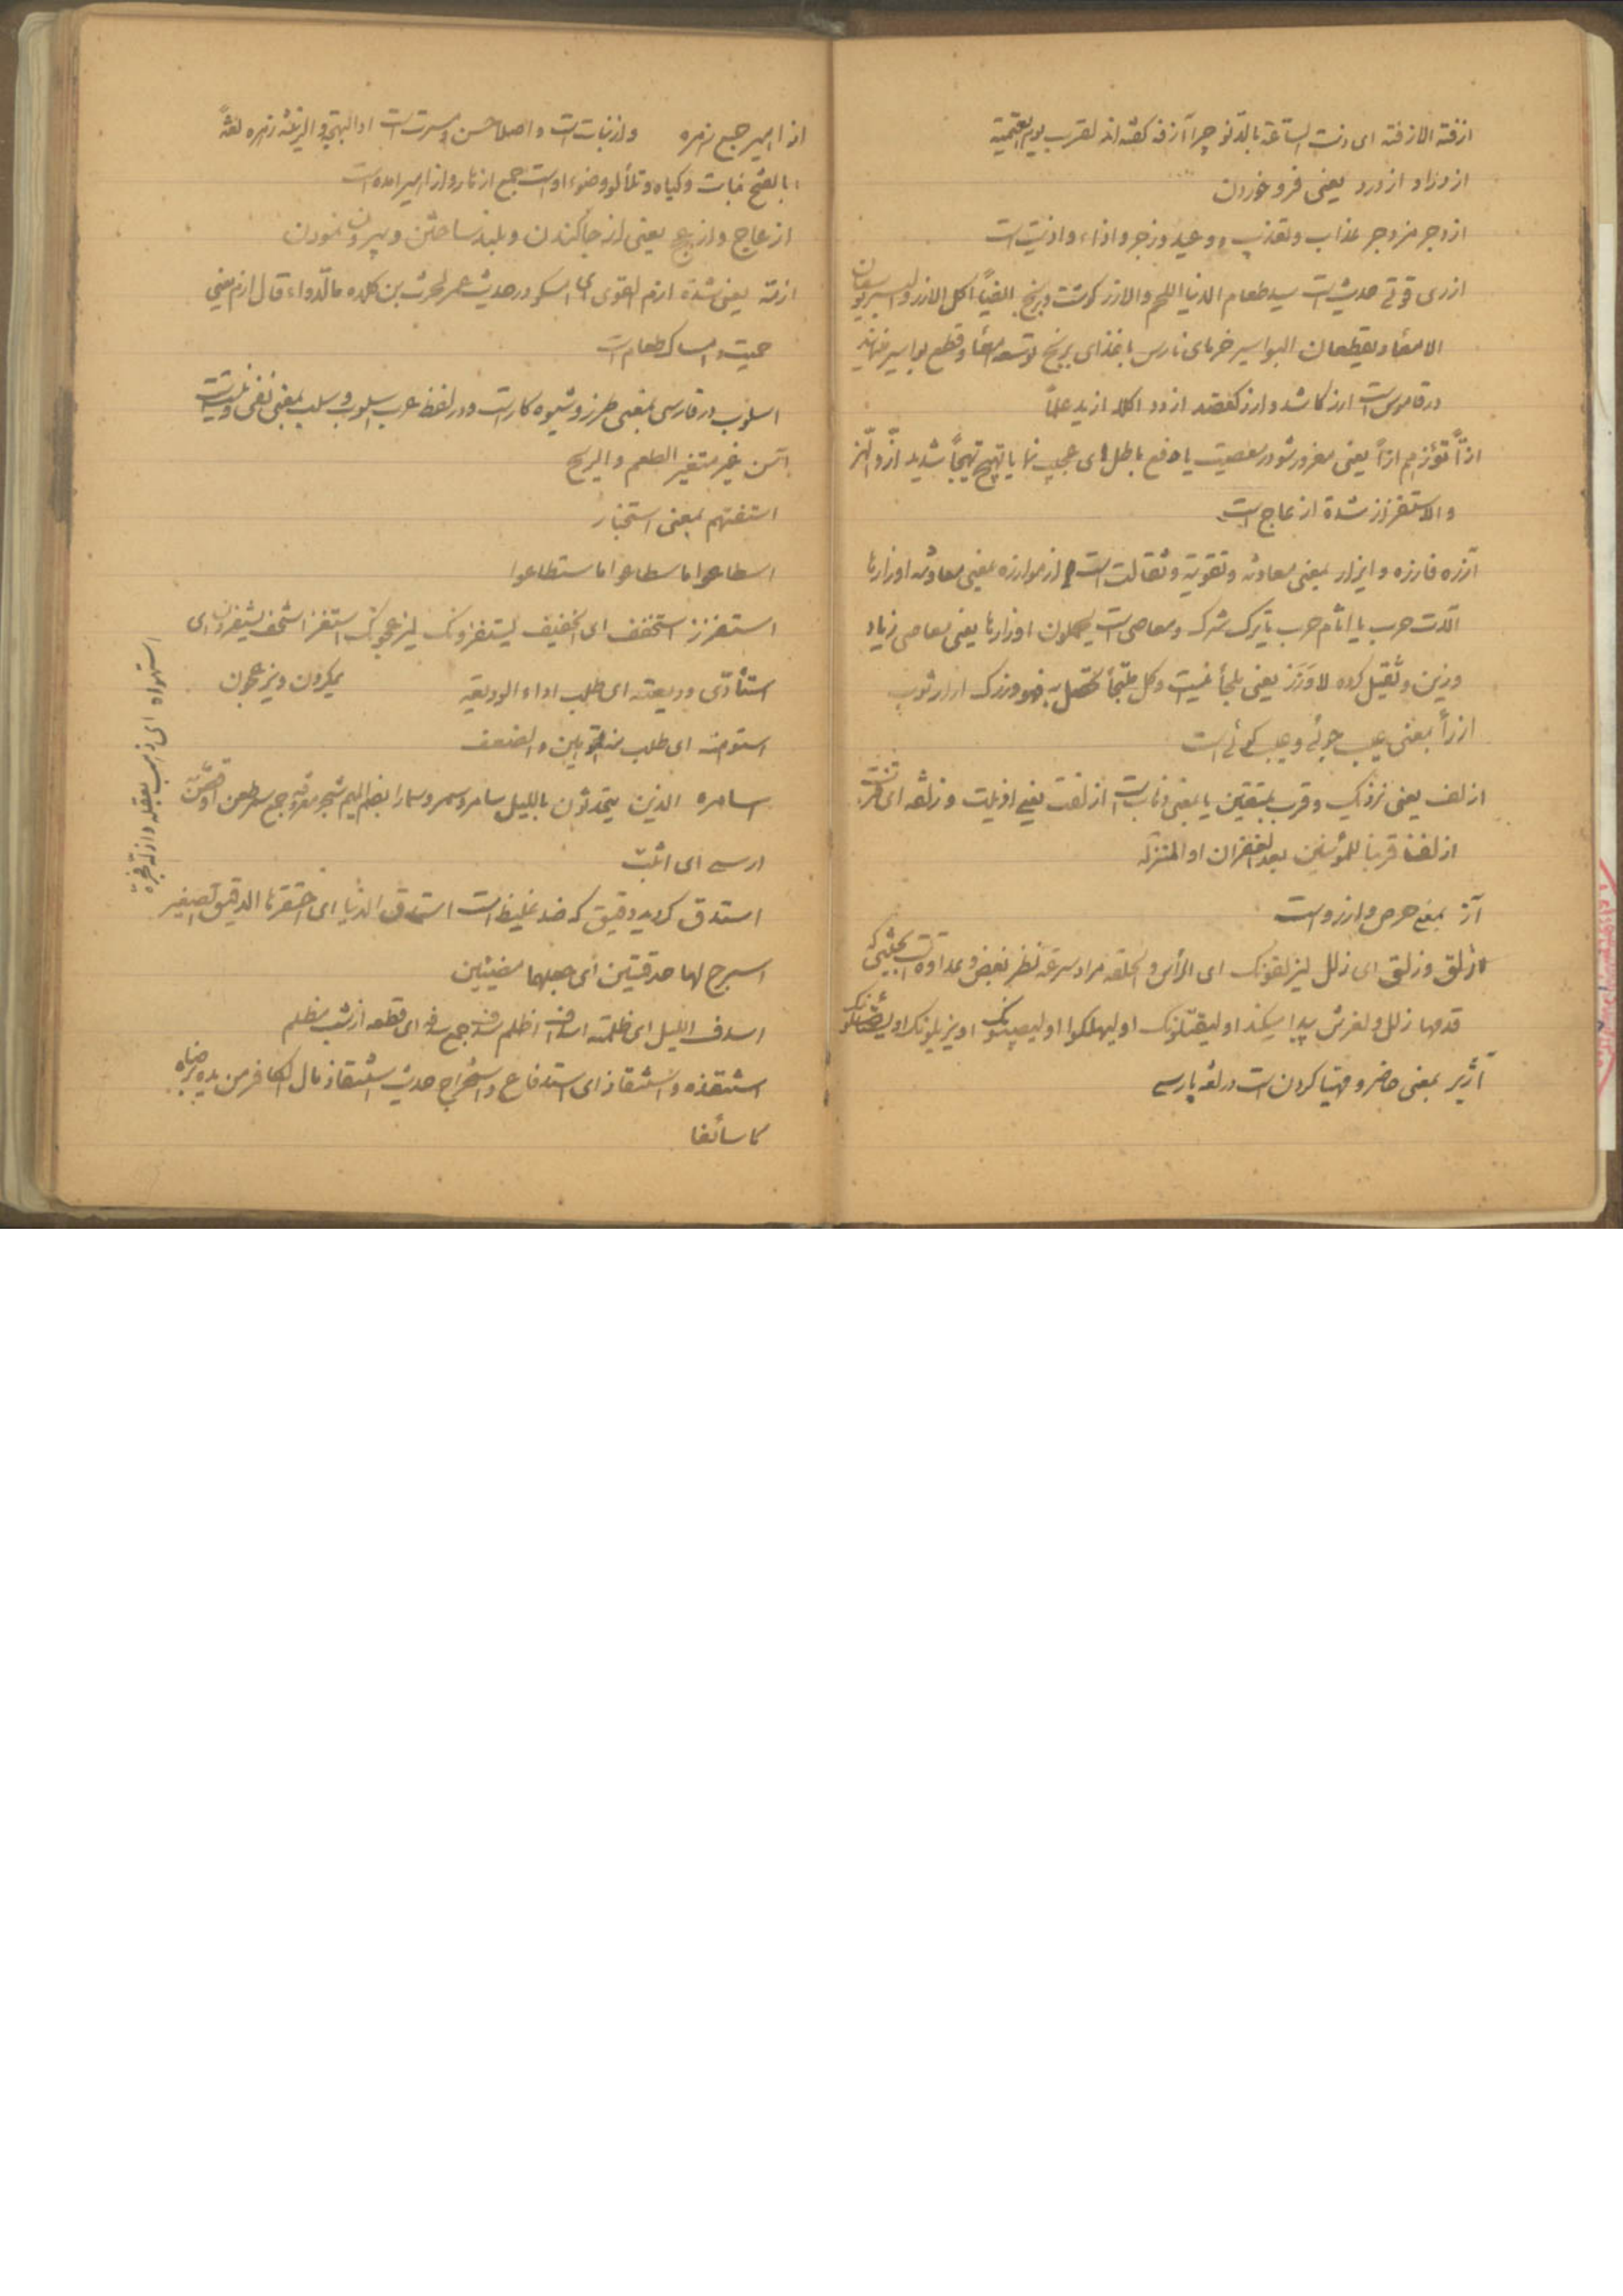 ازفة الازفة ای دنت الساعة بالدنو چرا آزفه گفته اند لقرب یوم القیمة
ازدراد از درد یعنی فرو خوردن
ازدجر مزدجر عذاب و تعذیب و وعید و زجر و اذاء و اذیت است
ازری قوتی حدیث است سید طعام الدنیا اللحم والارز گوشت و برنج ایضاً اکل الارز والبسر یوسعان
الامعاء و یقطعان البواسیر خرمای نارس با غذای برنج توسعه امعاء و قطع بواسیر
در قاموس است ارز کاشد و ارز کقفل ازود اکله ازید علماً
ازاً تؤزهم ازاً یعنی مغرور شو در معصیت یا دفع باطل ای عجیب نما یا تهیج تهیجاً شدید ازّ و الهز
والاستفزاز شدة ازعاج است
آزره فازره و ایزار بمعنی معاونه و تقویة و ثقالت است از موازره بمعنی معاونه اوزارها
آلات حرب یا اثام حرب یا ترک شرک و معاصی است یحملون اوزارها یعنی معاصی زیاد
وزین و ثقیل کرده لا وَزَر یعنی ملجأ نیست و کل ملتجأ به فهو وزرک
ازرأ بمعنی عیب جوئی و عیب گوئی است
ازلف یعنی نزدیک و قرب بمتقین یا بمعنی ازلفت یعنی ادنیت و زلفه ای
ازلفنا قربنا للمؤمنین بعد الغفران او المنزله
آز بمعنی حرص و ارزو است
ازلق و زلق ای زلل لیزلقونک ای الرأس و الحلقه مراد سرعة نظر بغض و عداوة است
قدمها زلل و لغزش پیدا میکند او لیقتلونک او لیهلکوا او لیصیبونک او یزیلونک
آژیر بمعنی حاضر و مهیا کردن است در لغة پارسی
ازاهیر جمع زهره و از نبات است و اصلا حسن و مسرت است او البهجة و الزینة زهره لغةً
بالفتح نبات و گیاه و تلألو و ضوء او است جمع ازهار و ازاهیر امده است
ازعاج و ازعج یعنی از جا کندن و بلند ساختن و بیرون نمودن
ازمة یعنی شدة ازم القوی ای امسکو در حدیث عمر لحرث بن کلده ما الدواء قال ازم یعنی
حمیت و امساک طعام است
اسلوب در فارسی بمعنی طرز و شیوه کار است و در لفظ عرب اسلوب و سلب بمعنی نفی
آسن غیر متغیر الطعم و الریح
استفتهم بمعنی استخبار
اسطاعوا ما سطاعوا ما ستطاعوا
استفزز استخفف ای الخفیف لیستفزونک لیزعجونک استفز استخف یستفزون ای
استأدی ودیعته ای طلب اداء الودیعة یمکرون و یزعجون
استوهن ای طلب منه توهین و الضعف
سامره الذین یتحدثون باللیل سامر و سمر و سمارا بضم المیم شجر معروف جمع سمر
ارسی ای اثبت
استدق گردید دقیق که ضد غلیظ است استدق الدنیا ای احتقرها الدقیق الصغیر
اسرج لها حدقتین ای جعلهما مضیئین
اسدف اللیل ای ظلمته اسدف اظلم سدف جمع سدفه ای قطعه از شب مظلم
استنقذه و استنقاذ ای استدفاع و استخراج حدیث استنقاذ مال الکافر من یده برضاه
کاسائغا
استهواه ای ذهب بعقله و ازله